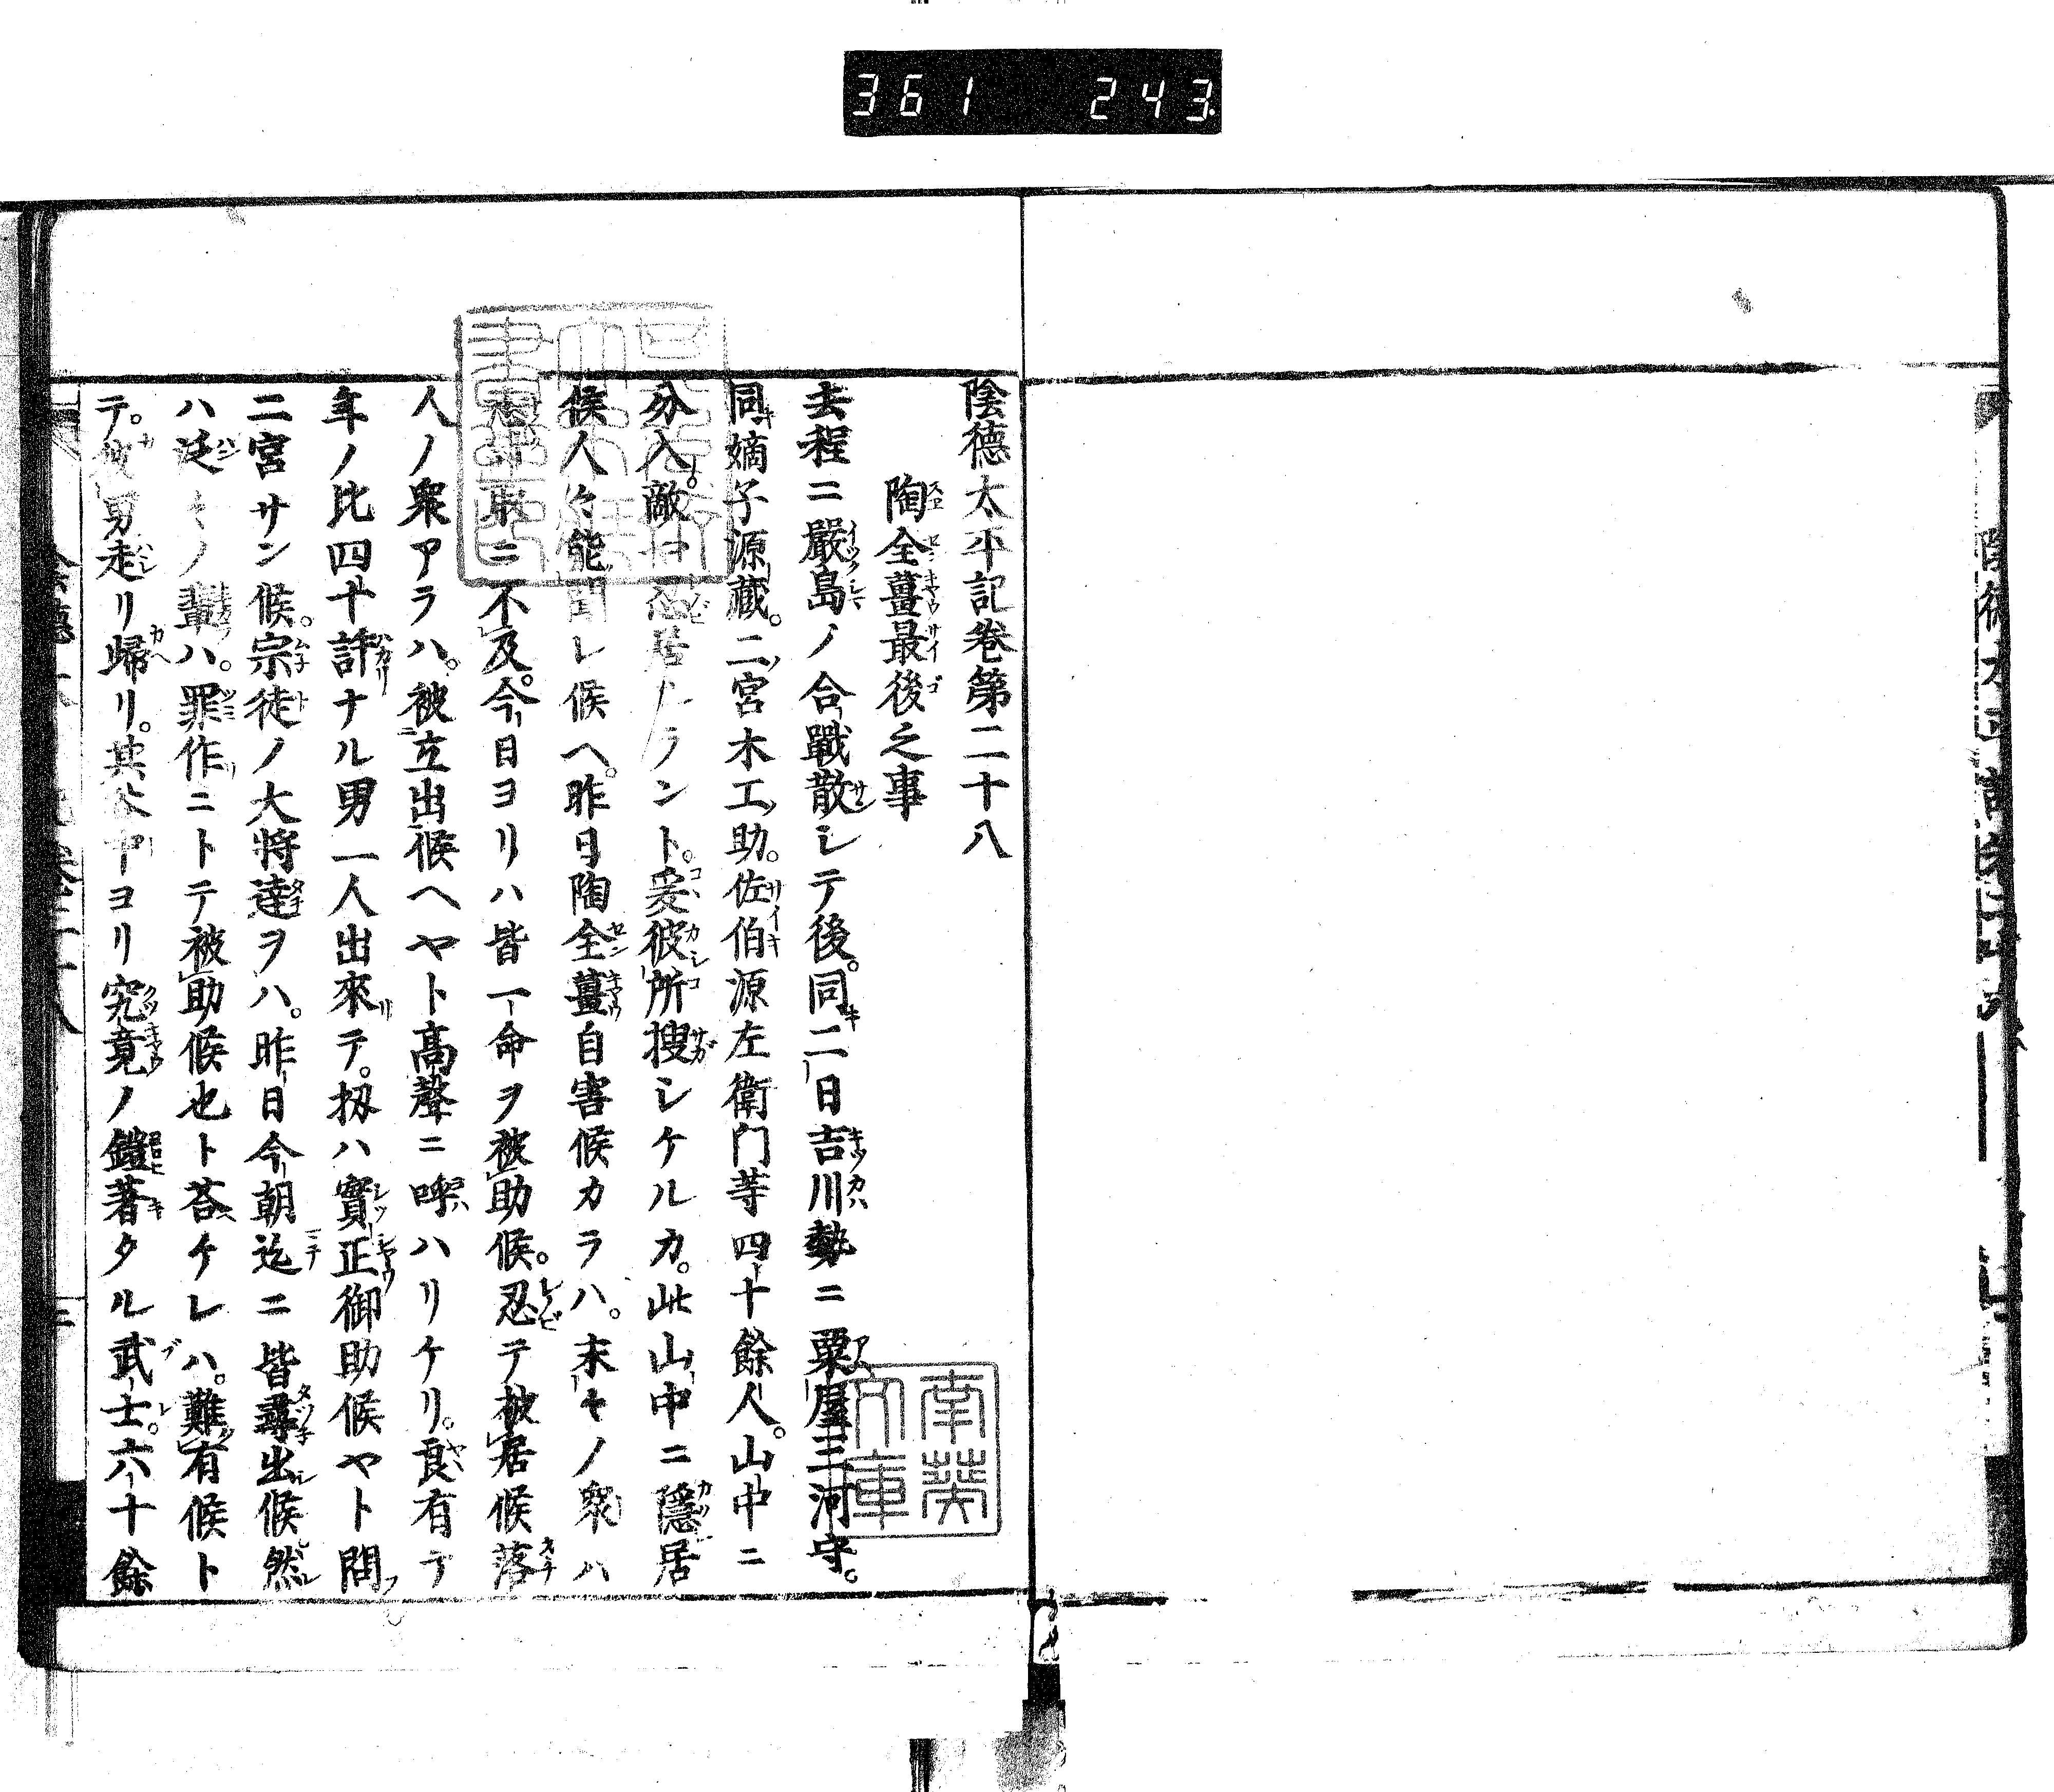 361 243
陰德太平記卷第二十八
陶全薑最後之事
去程ニ嚴島ノ合戰散シテ後。同二日吉川勢ニ粟屋三河守。
同嫡子源藏。二宮木工助。佐伯源左衛門等四十餘人。山中ニ
分入。敵ヤ忍居ルラント。爰彼所搜シケルカ。此山中ニ隱居
候人々能聞レ候ヘ。昨日陶全薑自害候カラハ。末々ノ衆ハ
取ニ不及。今日ヨリハ皆一命ヲ被助候。忍テ被居候落
人ノ衆アラハ。被立出候ヘヤト高聲ニ呼ハリケリ。良有テ
年ノ比四十許ナル男一人出來テ。扨ハ實正御助候ヤト問
二宮サン候。宗徒ノ大將達ヲハ。昨日今朝迄ニ皆尋出候然
ハ泛々ノ輩ハ。罪作ニトテ被助候也ト荅ケレハ。難有候ト
テ。彼男走リ歸リ。其谷中ヨリ究竟ノ鎧著タル武士。六十餘
南葵
文庫